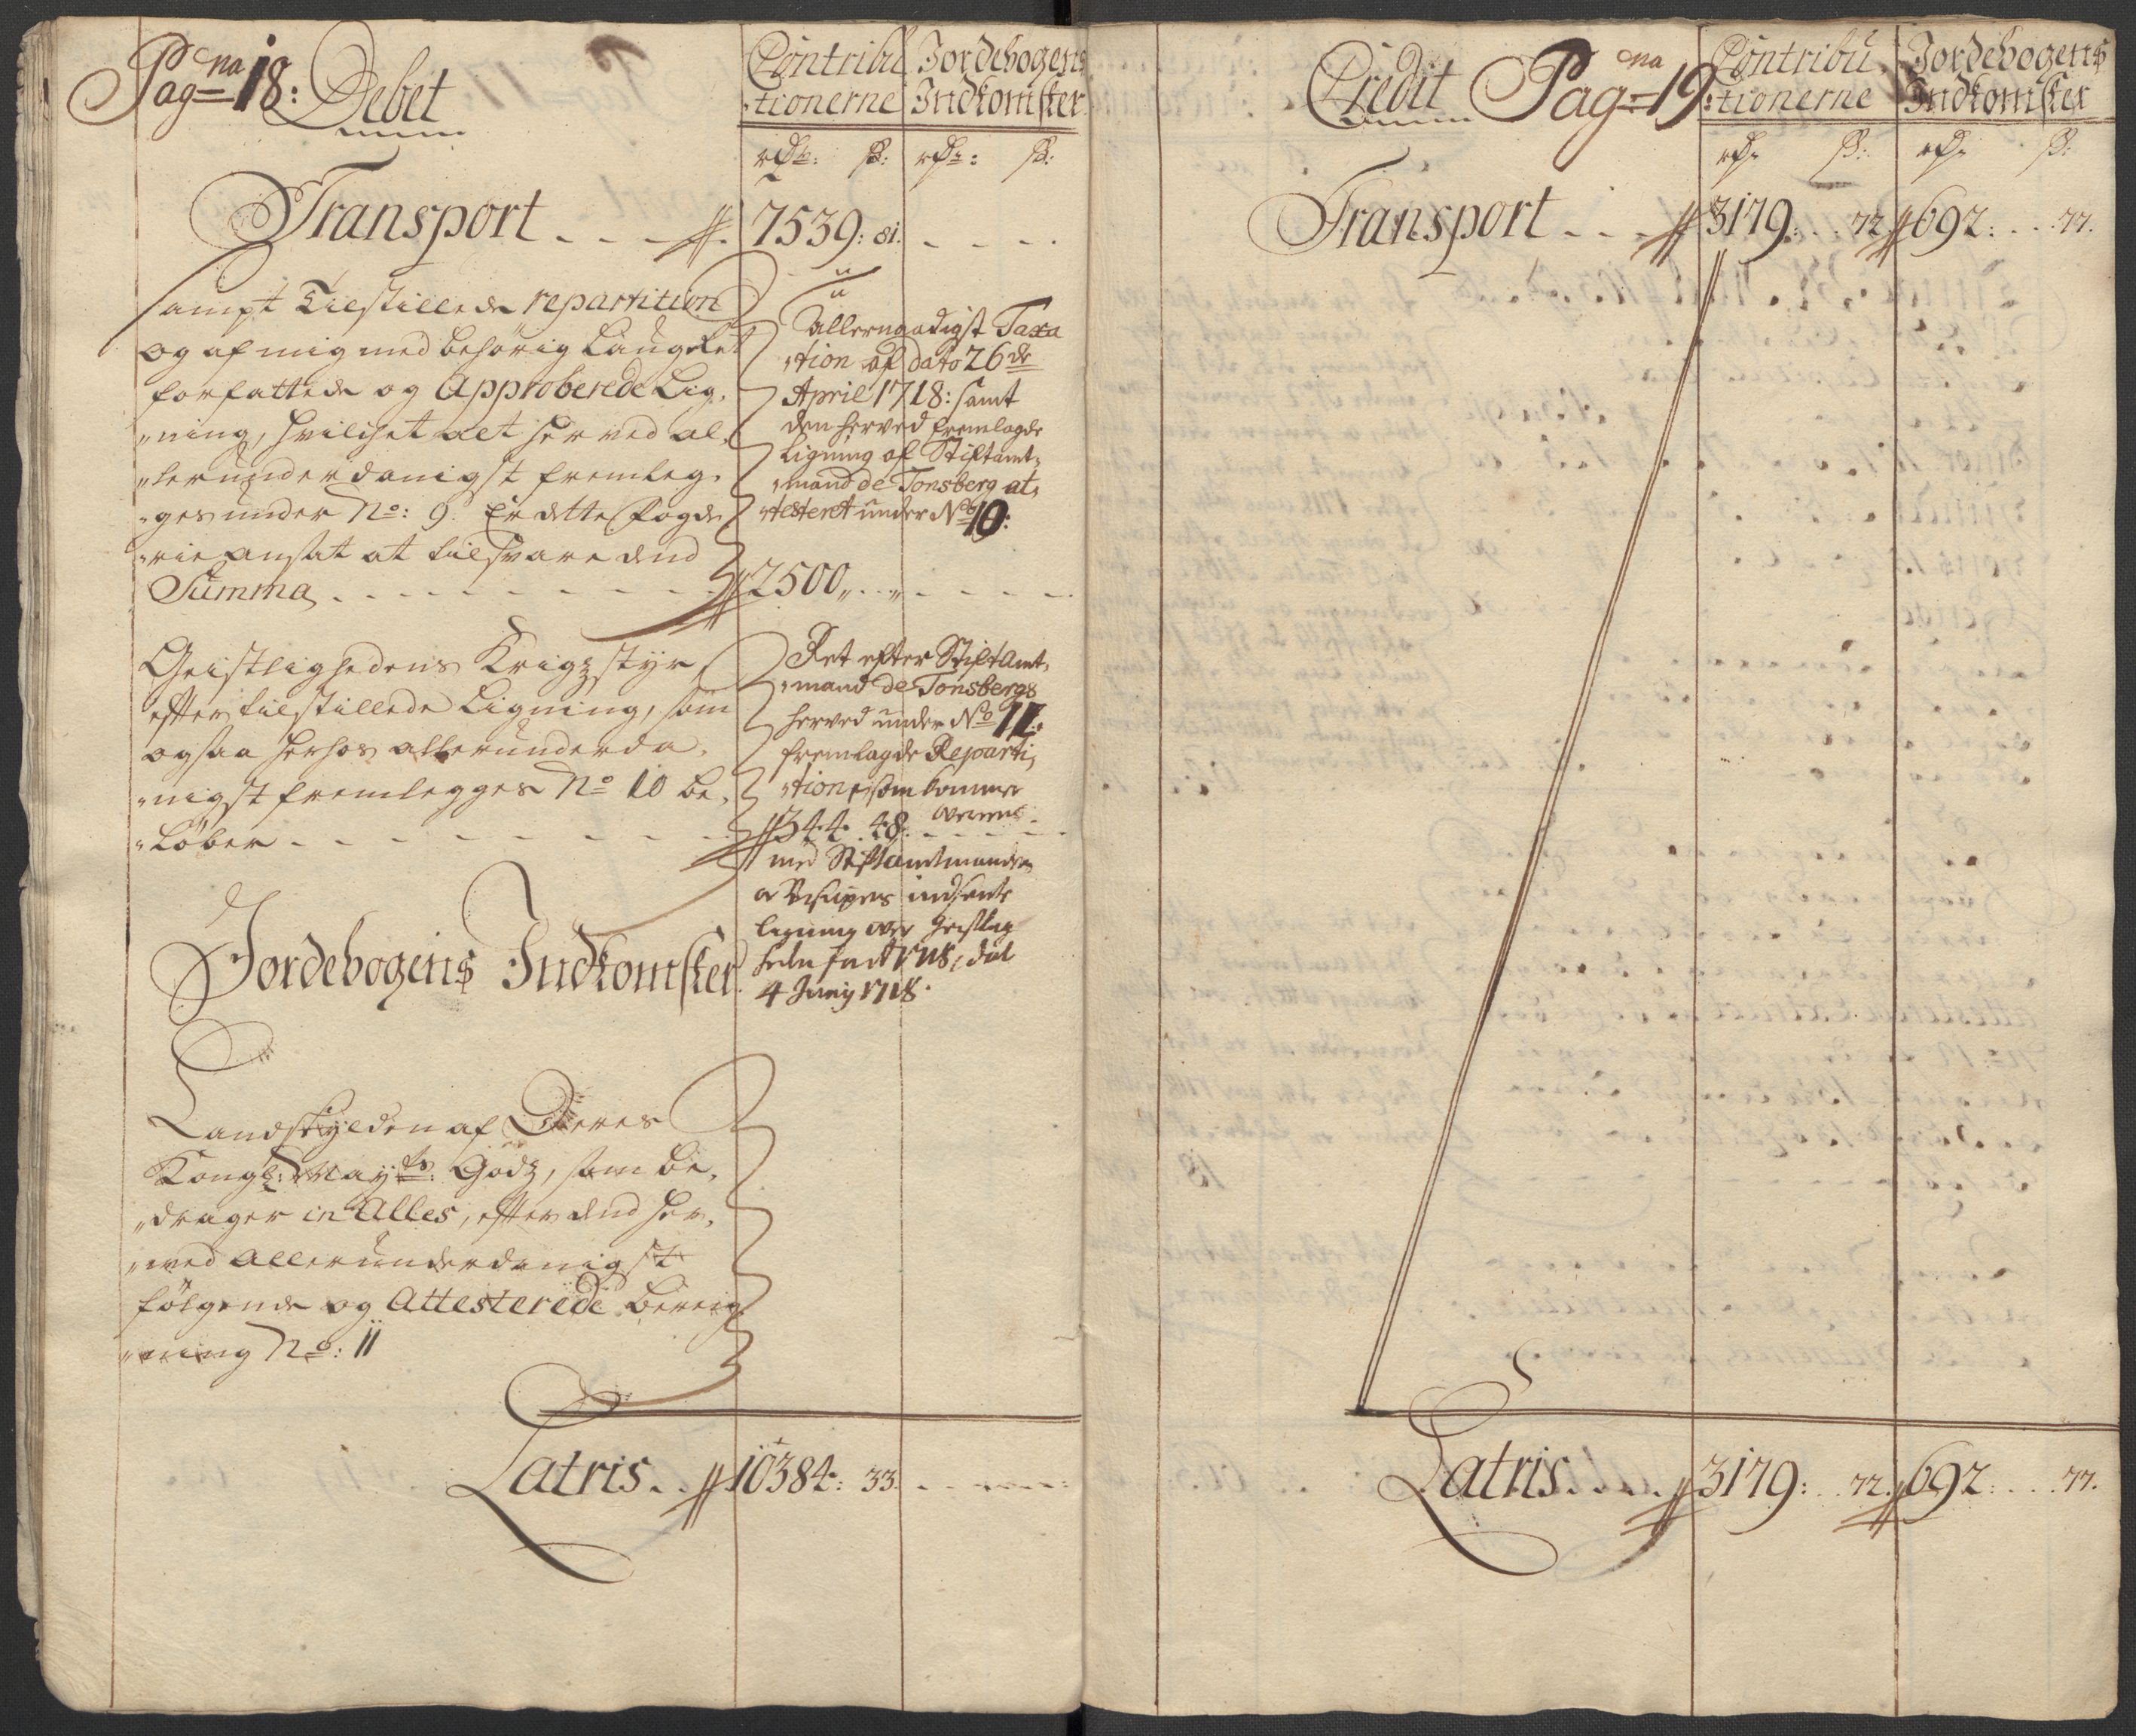 Pag=na 18: Debet
Contribu
tionerne
Jordebogens
Indkomster
rdlr: ß: rdr: ß:
Transport 7539: 81.
sampt Tilstillede repartition
og af mig med behörig Laugret
forfattede og Approberede Lig,
"ning, hvilchet alt herved al,
"lerunderdanigst fremleg,
"ges under No: 9. Er dette Fogde,
"rie ansat at tilsvare dend
Summa 2500
Allernaadigst Taxa
"tion af dato 26de
April 1718: samt
den herved fremlagde
Ligning af Stiftamt,
"mand de Tonsberg at,
"testeret under No 10:
Geistlighedens Krigsstyr
efter tilstillede Ligning, som
ogsaa herhos allerunderda,
"nigst fremlegges No 10 be,
"löber 344. 48.
Ret efter StiftAmt,
"mand de Tonsbergs
herved under No 11:
fremlagde Reparti,
"tion, som kommer
overens
med Stiftamtmandens
a Bisupens indsente
ligning over Geistlig
heden for Ao 1718, dat
4 Junij 1718.
Jordebogens Indkomster
Landskylden af Deres
Kongl: Mayts: Godz, som be,
"drager in Alles, efter dend her,
"ved allerunderdanigst
fölgende og Attesterede bereig
"ning No: 11
Latris 10384: 33.
Credit Pag=na 19:
Contribu
tionerne
Jordebogens
Indkomster
rdr ß: rdr ß:
Transport 3179: 72. 692: 77.
Latris 3179: 72. 692: 77.